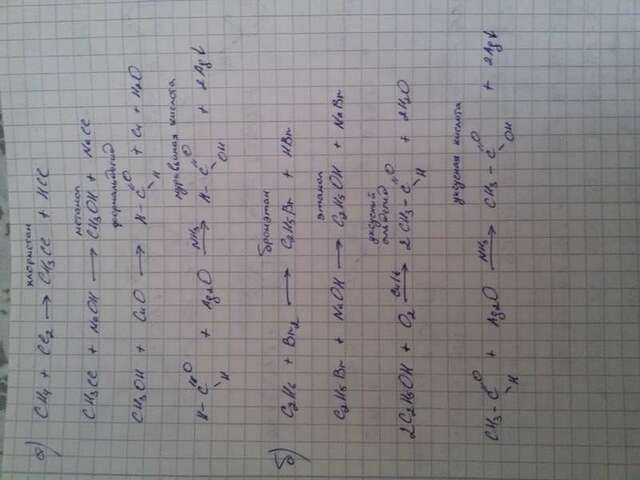 а) CH4 + Cl2 → CH3Cl + HCl
хлорметан
CH3Cl + NaOH → CH3OH + NaCl
метанол
CH3OH + CuO → H-C=O + Cu + H2O
H
формальдегид
H-C=O + Ag2O NH3→ H-C=O + 2Ag↓
H OH
муравьиная кислота
б) C2H6 + Br2 → C2H5Br + HBr
бромэтан
C2H5Br + NaOH → C2H5OH + NaBr
этанол
2C2H5OH + O2 → 2CH3-C=O + 2H2O
H
уксусный
альдегид
CH3-C=O + Ag2O NH3→ CH3-C=O + 2Ag↓
H OH
уксусная кислота